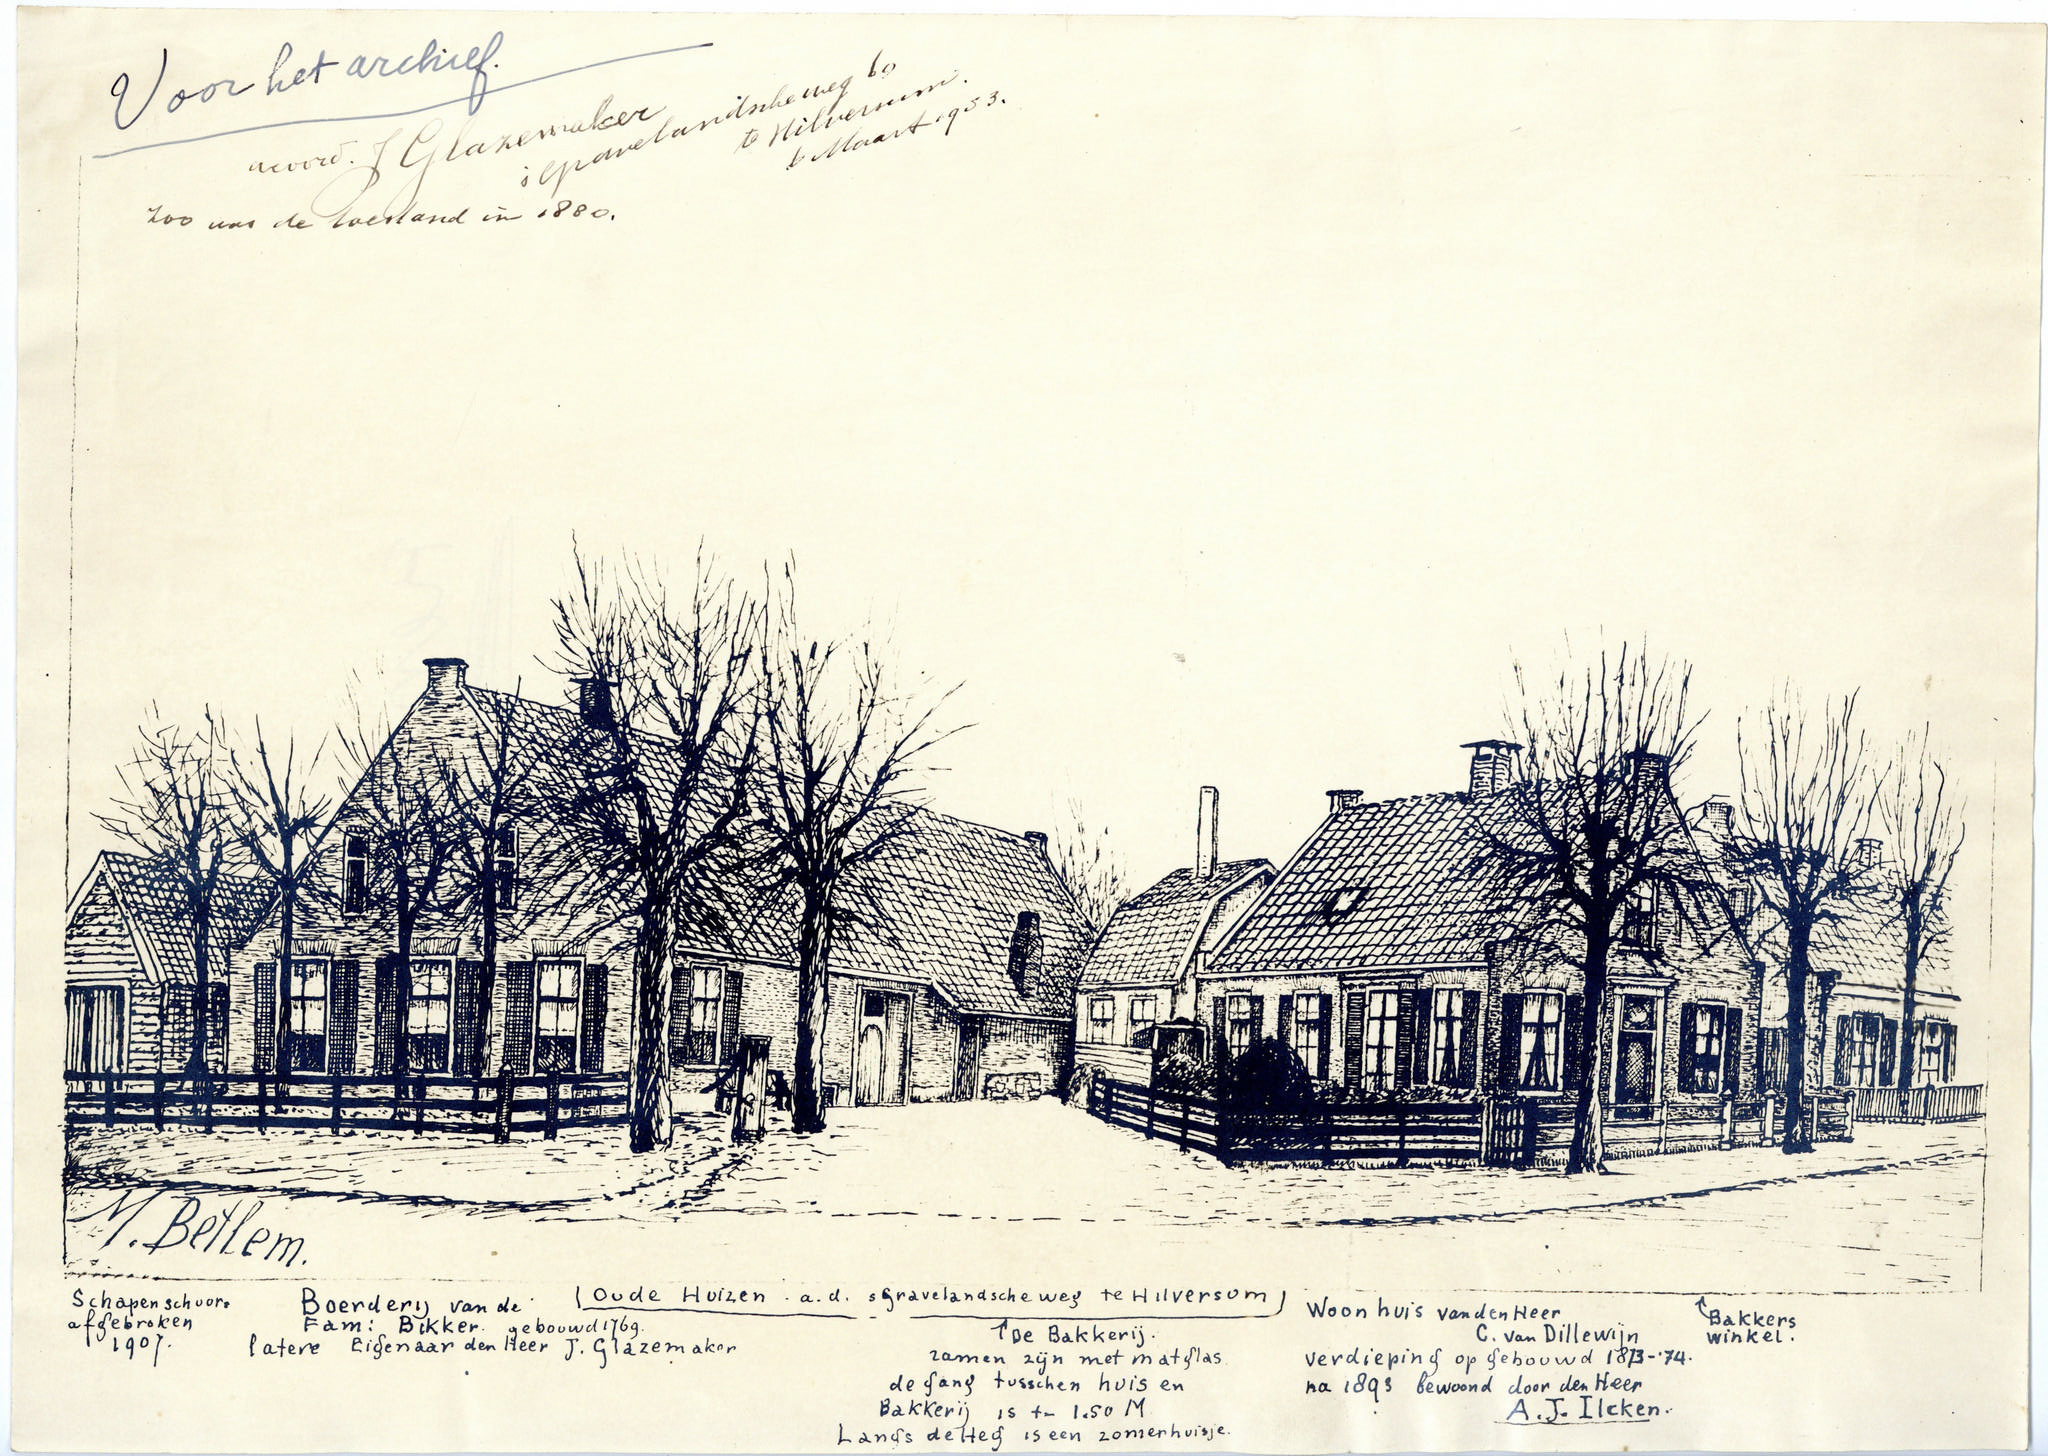 Voor het archief.
accoord. J Glazemaker
's Gravelandscheweg 60
te Hilversum.
6 Maart 1953.
zoo was de toestand in 1880.
M. Betlem.
Schapenschuur.
afgebroken
1907.
Boerderij van de
Fam: Bikker. gebouwd 1769.
latere Eigenaar den Heer J. Glazemaker
Oude Huizen a.d. sGravelandscheweg te Hilversum
↑De Bakkerij.
ramen zijn met matglas
de gang tusschen huis en
Bakkerij is +- 1.50 M
Langs de Heg is een zomerhuisje.
Woonhuis van den Heer
C. van Dillewijn
verdieping op gebouwd 1873-'74.
na 1893 bewoond door den Heer
A. J. Ilcken.
↑Bakkers
winkel.